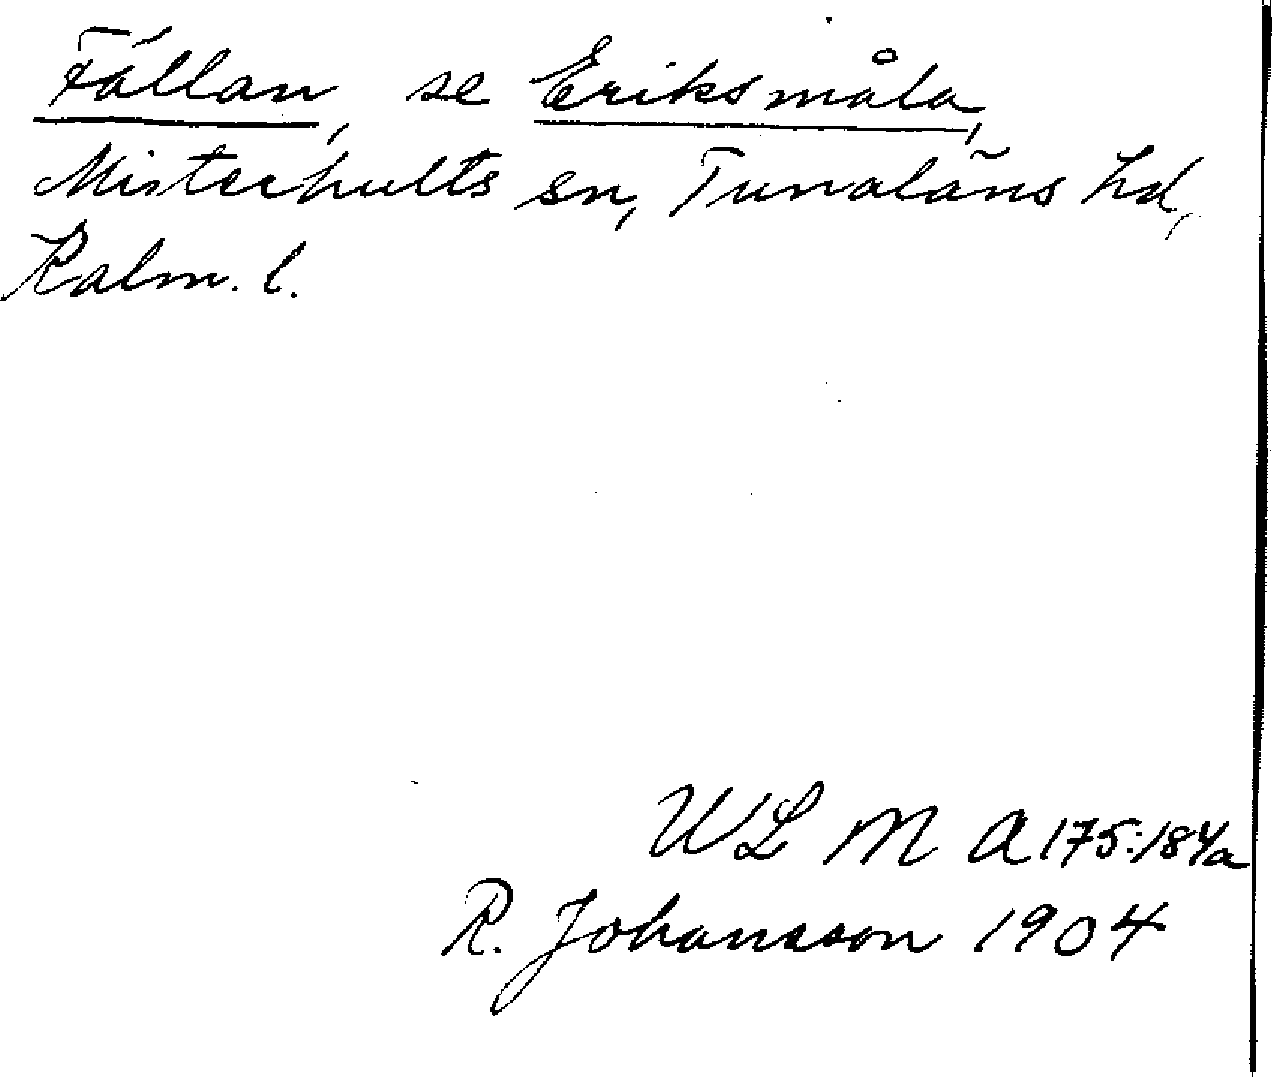 Fällan, se Eriksmåla,
Misterhults sn, Tunaläns hd,
Kalm. l.
ULM A 175:184a
R. Johansson 1904